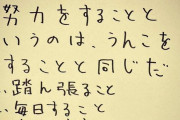 努力をすることと
いうのは、うんこを
することと同じだ
・踏ん張ること
・毎日すること